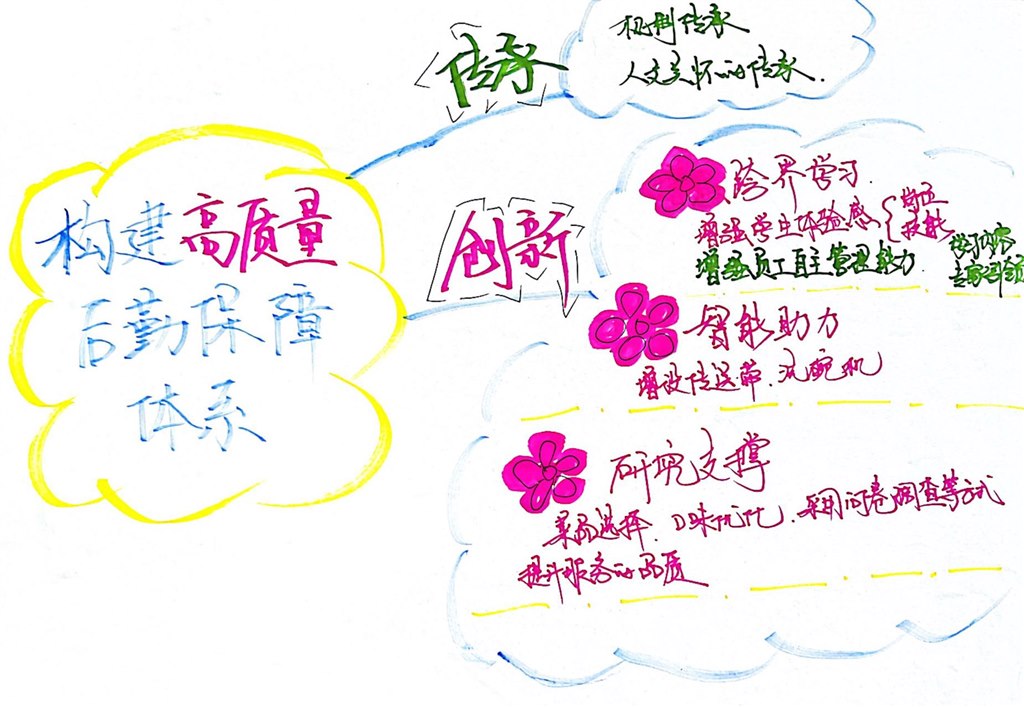 传承
机制传承
人文关怀的传承.
构建高质量
后勤保障
体系
创新
跨界学习.
增强学生体验感
岗位
技能
增强员工自主管理能力
学习内容
智能助力
增设传送带.洗碗机
研究支撑
菜品选择.口味优化.采用问卷调查等方式
提升服务的品质